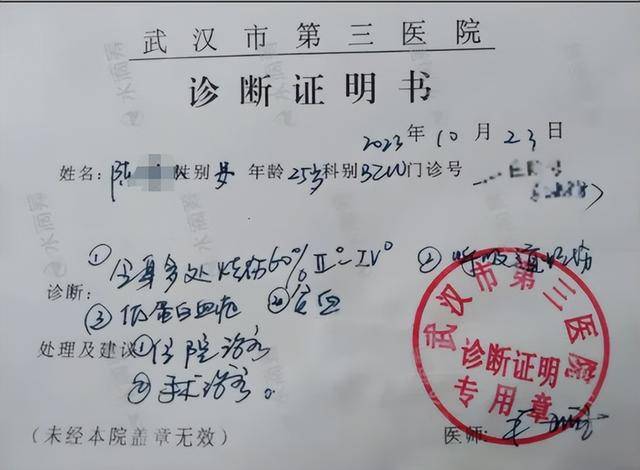 武汉市第三医院
诊断证明书
2023年10月23日
姓名:陈 性别 女 年龄 25岁 科别 BZW 门诊号
诊断: ①全身多处烧伤60% II°-IV° ②呼吸道烧伤
③低蛋白血症 ④贫血
处理及建议 ①住院治疗
②手术治疗。
(未经本院盖章无效) 医师:
武汉市第三医院
诊断证明
专用章
水滴筹